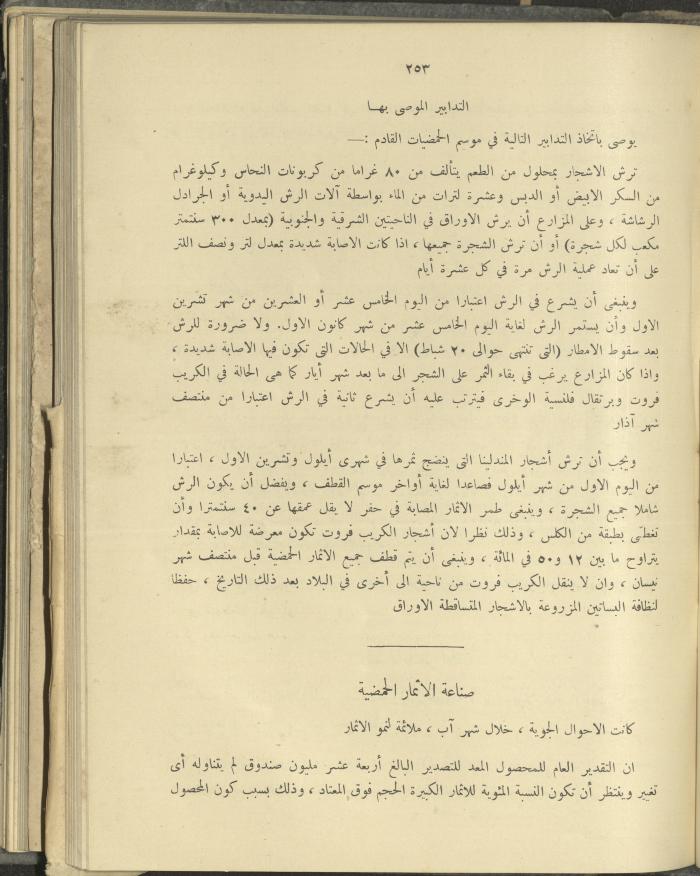 ٢٥٣
التدابير الموصى بها
يوصى باتخاذ التدابير التالية في موسم الحمضيات القادم :—
ترش الاشجار بمحلول من الطعم يتألف من ٨٠ غراما من كربونات النحاس وكيلوغرام
من السكر الابيض أو الدبس وعشرة لترات من الماء بواسطة آلات الرش اليدوية أو الجرادل
الرشاشة ، وعلى المزارع أن يرش الاوراق في الناحيتين الشرقية والجنوبية (بمعدل ٣٠٠ سنتمتر
مكعب لكل شجرة) أو أن ترش الشجرة جميعها ، اذا كانت الاصابة شديدة بمعدل لتر ونصف اللتر
على أن تعاد عملية الرش مرة في كل عشرة أيام
وينبغى أن يشرع في الرش اعتبارا من اليوم الخامس عشر أو العشرين من شهر تشرين
الاول وأن يستمر الرش لغاية اليوم الخامس عشر من شهر كانون الاول. ولا ضرورة للرش
بعد سقوط الامطار (التى تنتهى حوالى ٢٠ شباط) الا في الحالات التى تكون فيها الاصابة شديدة ،
واذا كان المزارع يرغب في بقاء الثمر على الشجر الى ما بعد شهر أيار كما هى الحالة في الكريب
فروت وبرتقال فلنسية الوخرى فيترتب عليه أن يشرع ثانية في الرش اعتبارا من منتصف
شهر آذار
ويجب أن ترش أشجار المندلينا التى ينضج ثمرها في شهرى أيلول وتشرين الاول ، اعتبارا
من اليوم الاول من شهر أيلول فصاعدا لغاية أواخر موسم القطف ، ويفضل أن يكون الرش
شاملا جميع الشجرة ، وينبغى طمر الاثمار المصابة في حفر لا يقل عمقها عن ٤٠ سنتمترا وأن
تغطّى بطبقة من الكلس ، وذلك نظرا لان أشجار الكريب فروت تكون معرضة للاصابة بمقدار
يتراوح ما بين ١٢ و٥٠ في المائة ، وينبغى أن يتم قطف جميع الاثمار الحمضية قبل منتصف شهر
نيسان ، وان لا ينقل الكريب فروت من ناحية الى أخرى في البلاد بعد ذلك التاريخ ، حفظا
لنظافة البساتين المزروعة بالاشجار المتساقطة الاوراق
صناعة الاثمار الحمضية
كانت الاحوال الجوية ، خلال شهر آب ، ملائمة لنمو الاثمار
ان التقدير العام للمحصول المعد للتصدير البالغ أربعة عشر مليون صندوق لم يتناوله أى
تغيير وينتظر أن تكون النسبة المئوية للاثمار الكبيرة الحجم فوق المعتاد ، وذلك بسبب كون المحصول